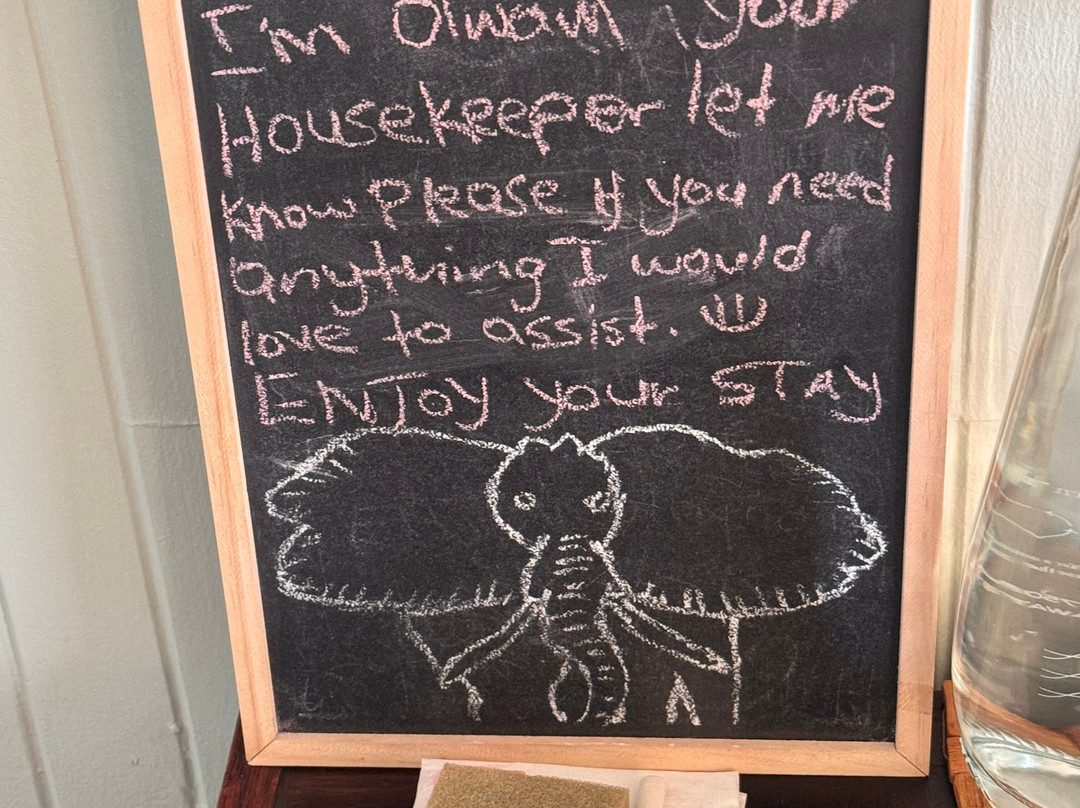 I'm Olwam, your
Housekeeper let me
know please if you need
anything I would
love to assist.
ENJOY your STAY